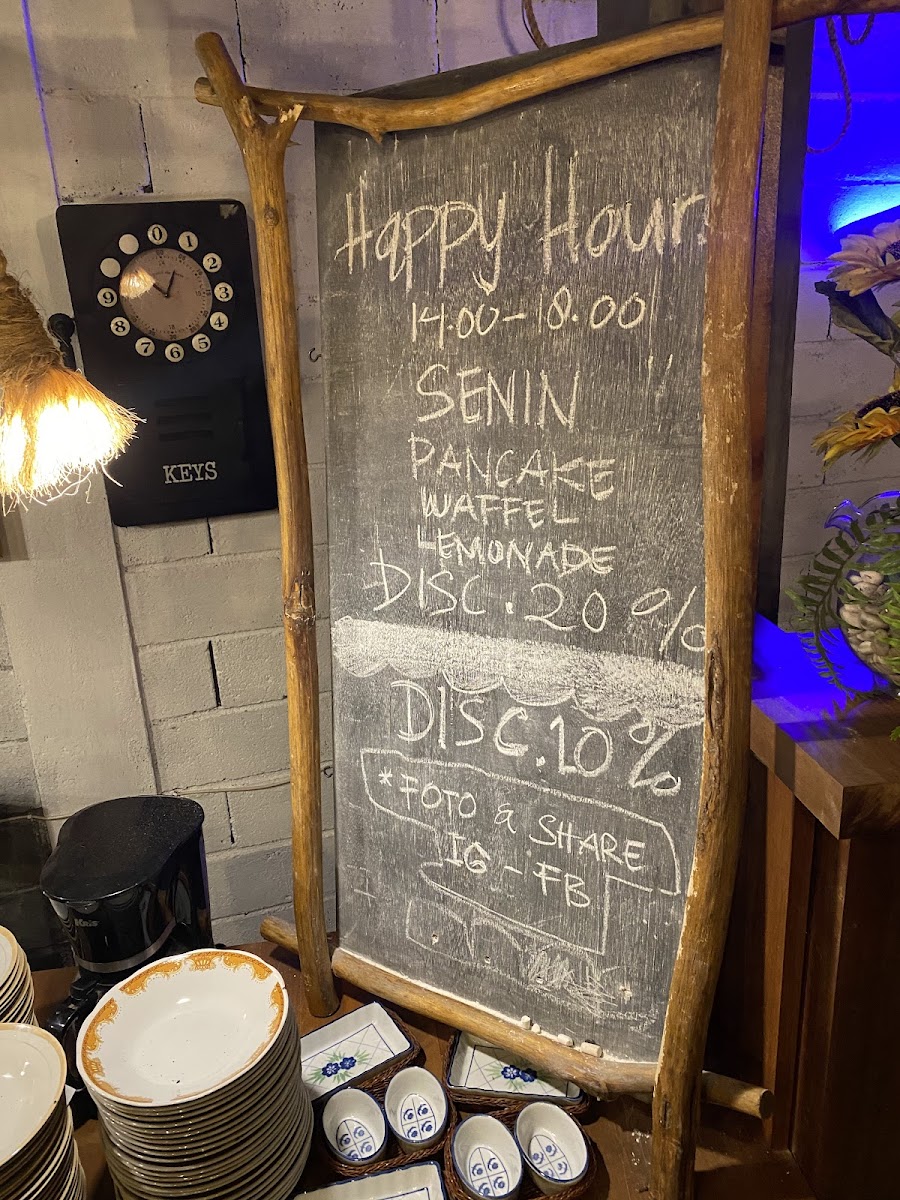 Happy Hour
14.00 - 18.00
SENIN
PANCAKE
WAFFEL
LEMONADE
DISC. 20 %
DISC. 10 %
* FOTO & SHARE
IG - FB
0
1
2
3
4
5
6
7
8
9
KEYS
Kris